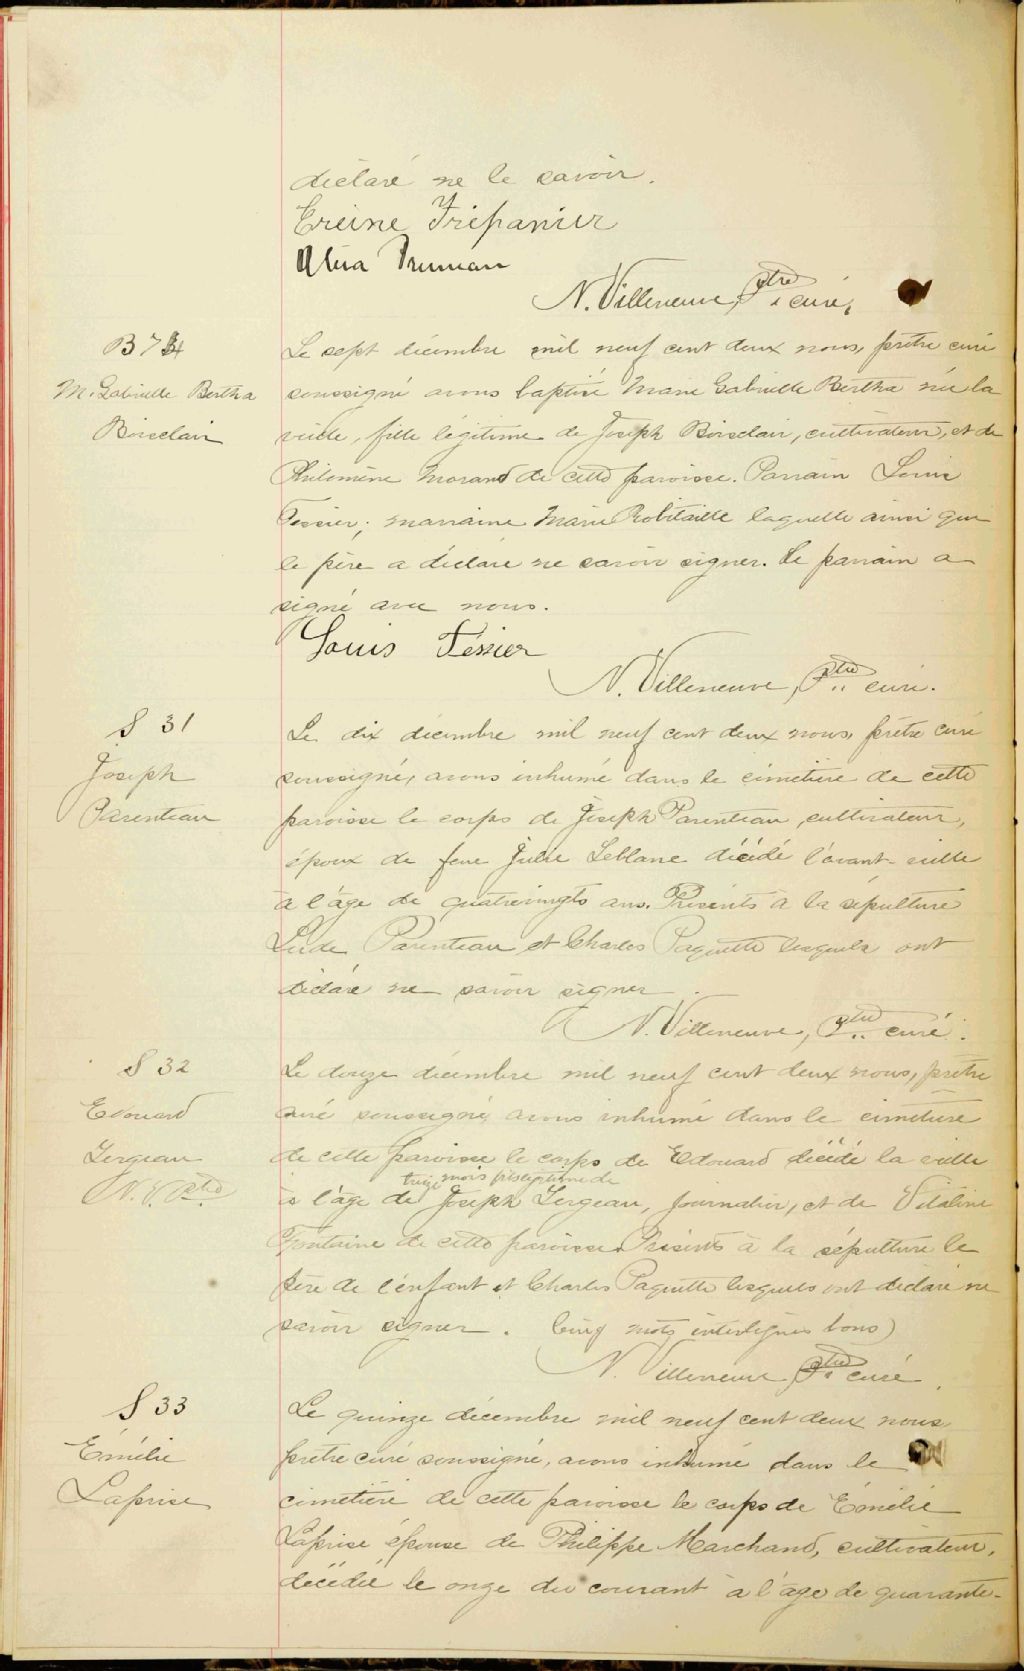 déclaré ne le savoir.
Ereine Trépanier
Pruneau
N. Villeneuve, Ptre curé,
B 74
M. Gabrielle Bertha
Boisclair
Le sept décembre mil neuf cent deux nous, prêtre curé
soussigné avons baptisé Marie Gabrielle Bertha née la
veille, fille légitime de Joseph Boisclair, cultivateur, et de
Philomène Morand de cette paroisse. Parrain Louis
Tessier; marraine Marie Robitaille laquelle ainsi que
le père a déclaré ne savoir signer. Le parrain a
signé avec nous.
Louis Téssier
N. Villeneuve, Ptre curé.
S 31
Joseph
Parenteau
Le dix décembre mil neuf cent deux nous, prêtre curé
soussigné, avons inhumé dans le cimetière de cette
paroisse le corps de Joseph Parenteau, cultivateur,
époux de feue Julie Leblanc décédé l'avant-veille
à l'âge de quatrevingts ans. Présents à la sépulture
Parenteau et Charles Paquette lesquels ont
déclaré ne savoir signer.
N. Villeneuve, Ptre curé.
S 32
Edouard
Gergeau
N. V. Ptre
Le douze décembre mil neuf cent deux nous, prêtre
curé soussigné, avons inhumé dans le cimetière
de cette paroisse le corps de Edouard décédé la veille
treize mois fils légitime de
à l'âge de Joseph Gergeau, journalier, et de Vitaline
Fontaine de cette paroisse. Présents à la sépulture le
père de l'enfant et Charles Paquette lesquels ont déclaré ne
savoir signer. Cinq mots interlignés bons)
N. Villeneuve, Ptre curé.
S 33
Émélie
Laprise
Le quinze décembre mil neuf cent deux nous
prêtre curé soussigné, avons inhumé dans le
cimetière de cette paroisse le corps de Émélie
Laprise épouse de Philippe Marchand, cultivateur,
décédée le onze du courant à l'âge de quarante-